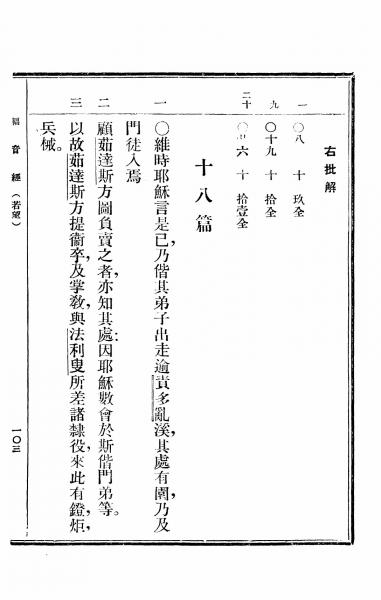 右批解
一 〇八 十 玖全
九 〇十九 十 拾全
二十 〇卄六 十 拾壹全
十八篇
一 〇維時耶穌言是已，乃偕其弟子出走逾責多亂溪，其處有園，乃及
門徒入焉
二 顧茹達斯方圖負賣之者，亦知其處：因耶穌數會於斯偕門弟等。
三 以故茹達斯方提衞卒，及掌敎，與法利叟所差諸隸役，來此有鐙，炬，
兵械。
福音經（若望）
一〇三